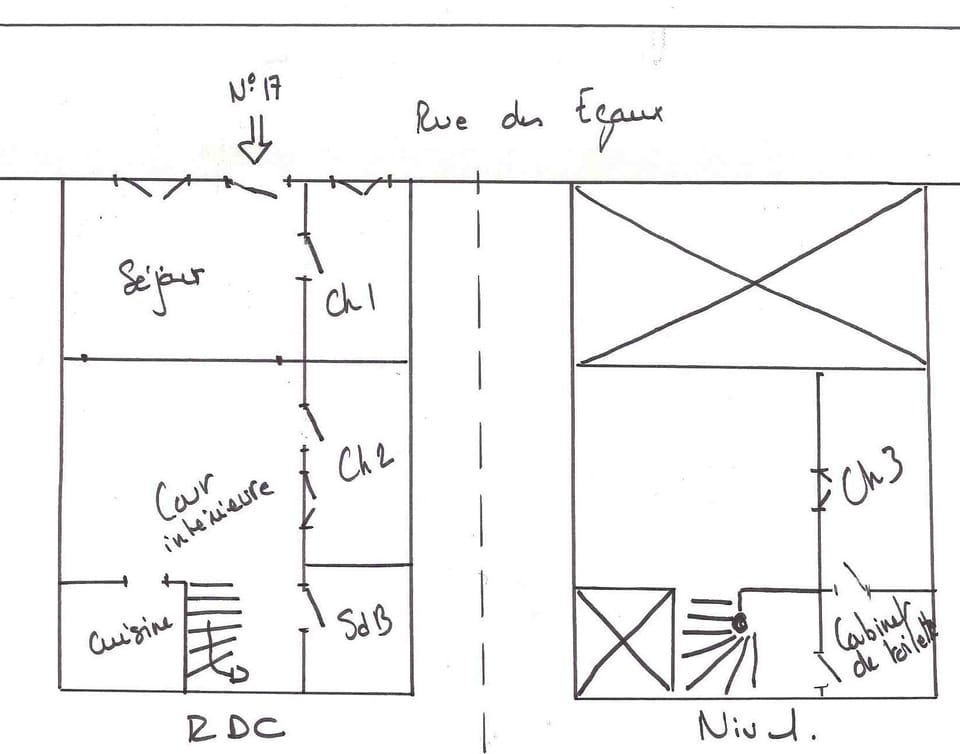 N° 17
Rue des Egaux
Séjour
Ch 1
Ch 2
Cour
intérieure
Cuisine
SdB
RDC
Ch 3
Cabinet
de toilette
Niv 1.